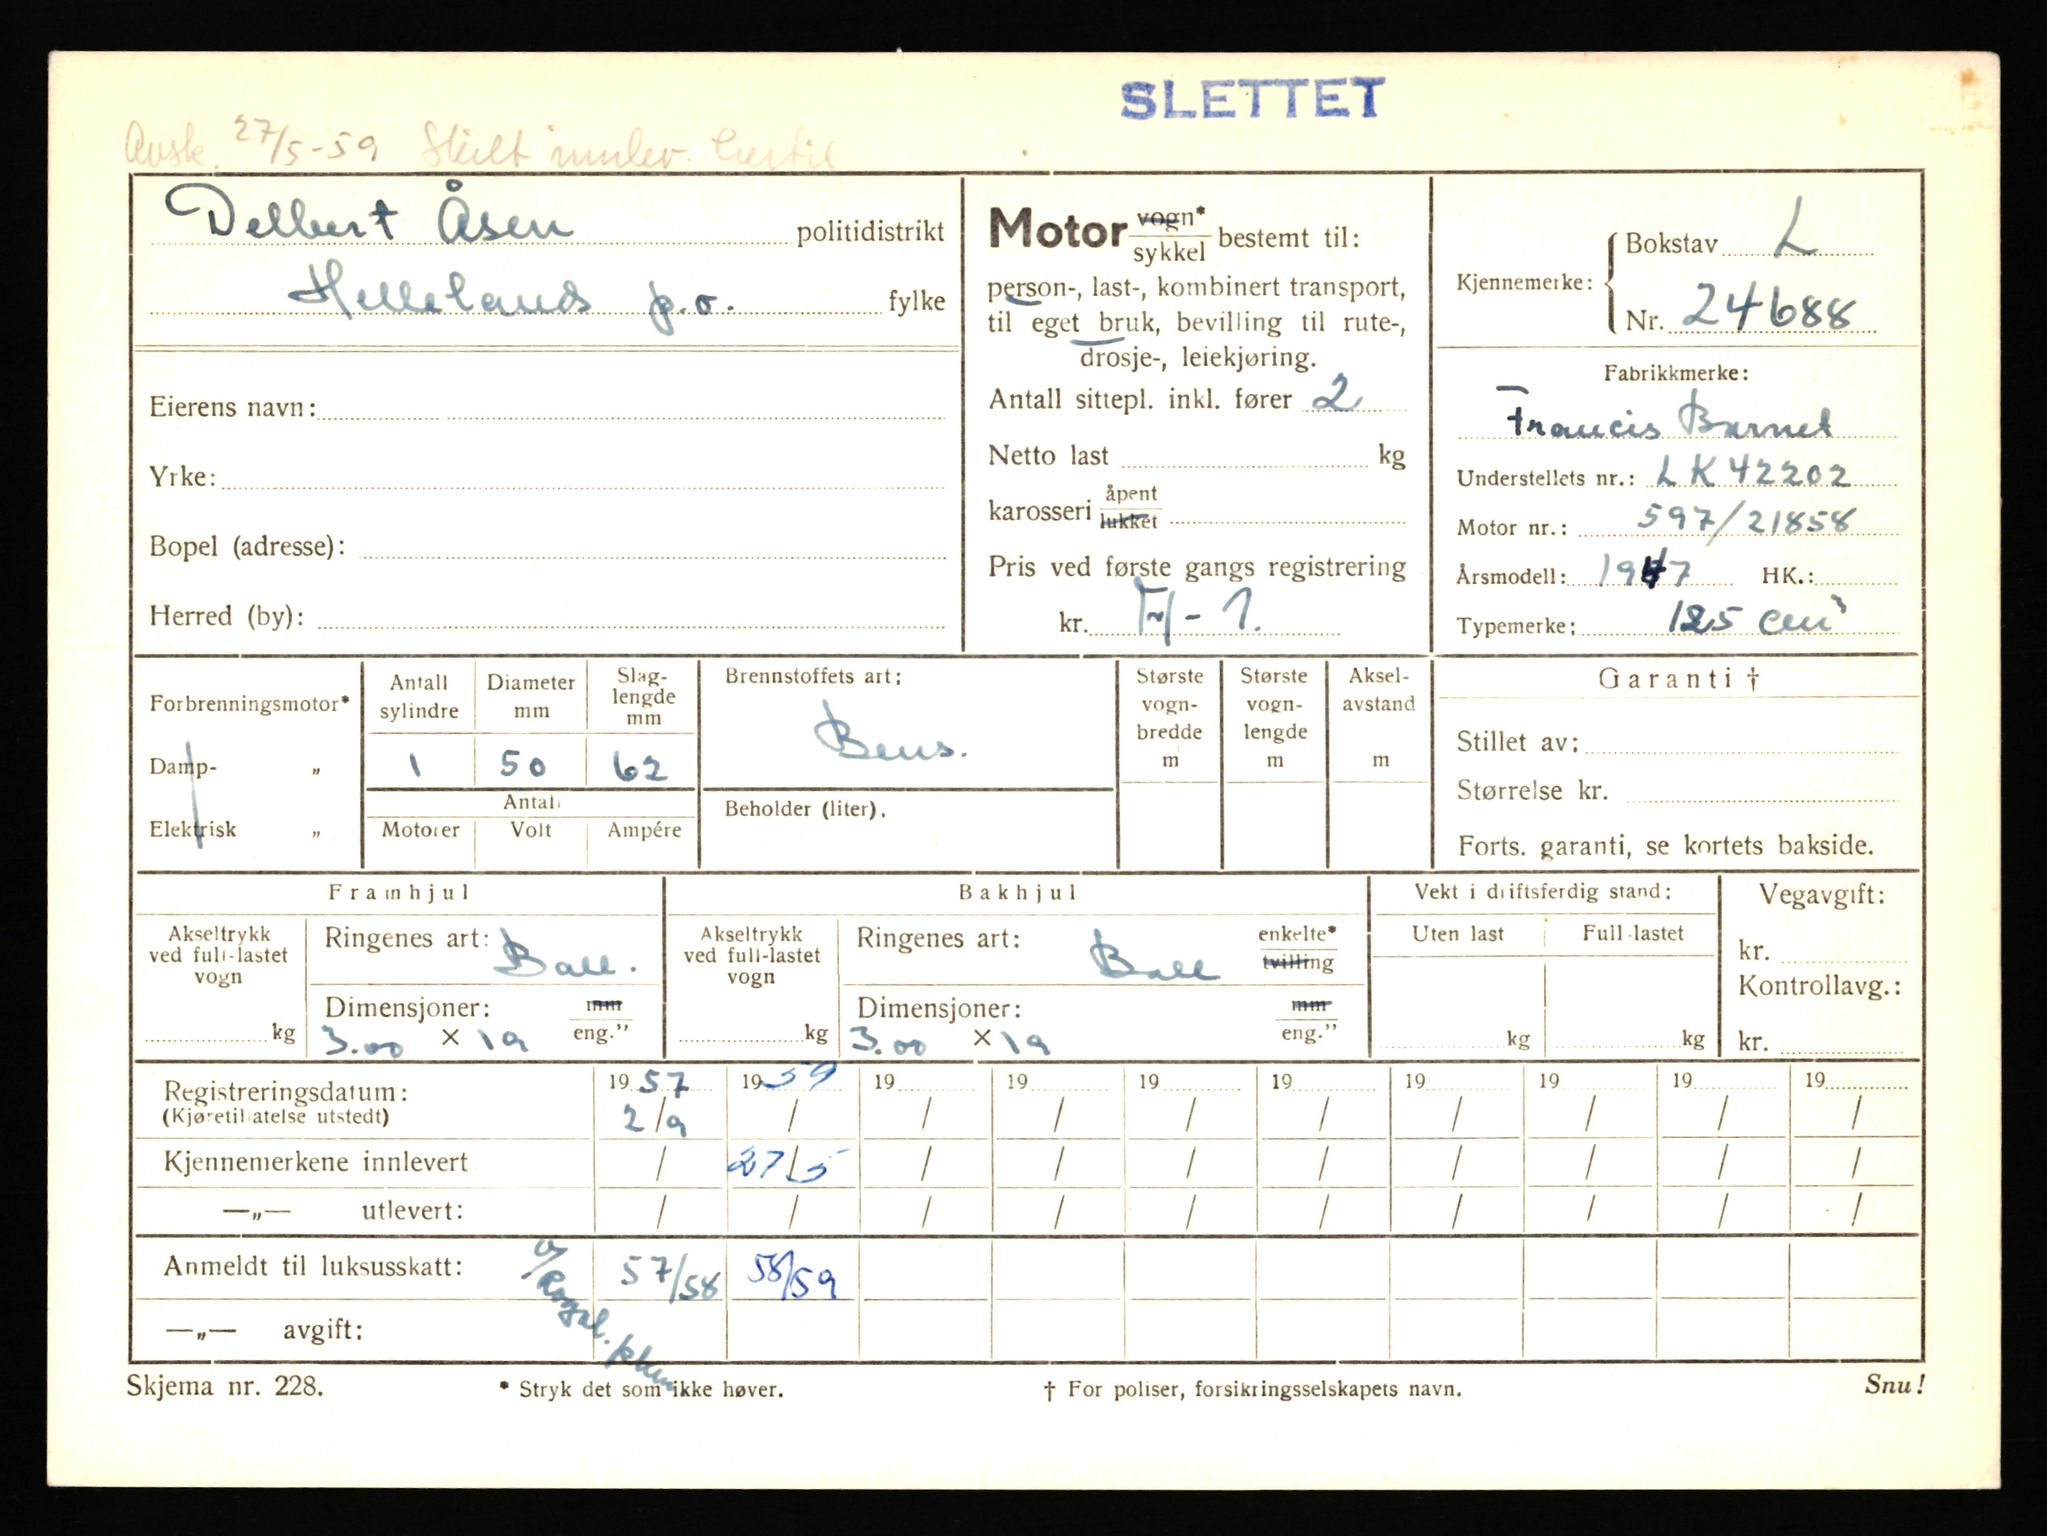 SLETTET
Avsk. 27/5-59 Skilt innlev.
Delbert Åsen politidistrikt
Hellelands p.o. fylke
Eierens navn:
Yrke:
Bopel (adresse):
Herred (by):
Motor vogn* sykkel bestemt til:
person-, last-, kombinert transport,
til eget bruk, bevilling til rute-,
drosje-, leiekjøring.
Antall sittepl. inkl. fører 2
Netto last kg
karosseri åpent lukket
Pris ved første gangs registrering
kr.
Kjennemerke: Bokstav L
Nr. 24688
Fabrikkmerke:
Francis Barnet
Understellets nr.: LK 42202
Motor nr.: 597/21858
Årsmodell: 1947 HK.:
Typemerke: 125 cm³
Forbrenningsmotor*
Damp- „
Elektrisk „
Antall sylindre 1
Diameter mm 50
Slag-lengde mm 62
Antall
Motorer Volt Ampére
Brennstoffets art:
Bens.
Beholder (liter).
Største vogn-bredde m
Største vogn-lengde m
Aksel-avstand m
Garanti †
Stillet av:
Størrelse kr.
Forts. garanti, se kortets bakside.
Framhjul
Akseltrykk ved full-lastet vogn kg
Ringenes art: Ball.
Dimensjoner: mm eng.”
3.00 × 19
Bakhjul
Akseltrykk ved full-lastet vogn kg
Ringenes art: Ball enkelte* tvilling
Dimensjoner: mm eng.”
3.00 × 19
Vekt i driftsferdig stand:
Uten last Full-lastet
kg kg
Vegavgift:
kr.
Kontrollavg.:
kr.
Registreringsdatum: 19 57 19 59 19 19 19 19 19 19 19 19
(Kjøretillatelse utstedt) 2/9 / / / / / / / / /
Kjennemerkene innlevert / 27/5 / / / / / / / /
—„— utlevert: / / / / / / / / / /
Anmeldt til luksusskatt: 57/58 58/59
—„— avgift:
Skjema nr. 228. * Stryk det som ikke høver. † For poliser, forsikringsselskapets navn. Snu!